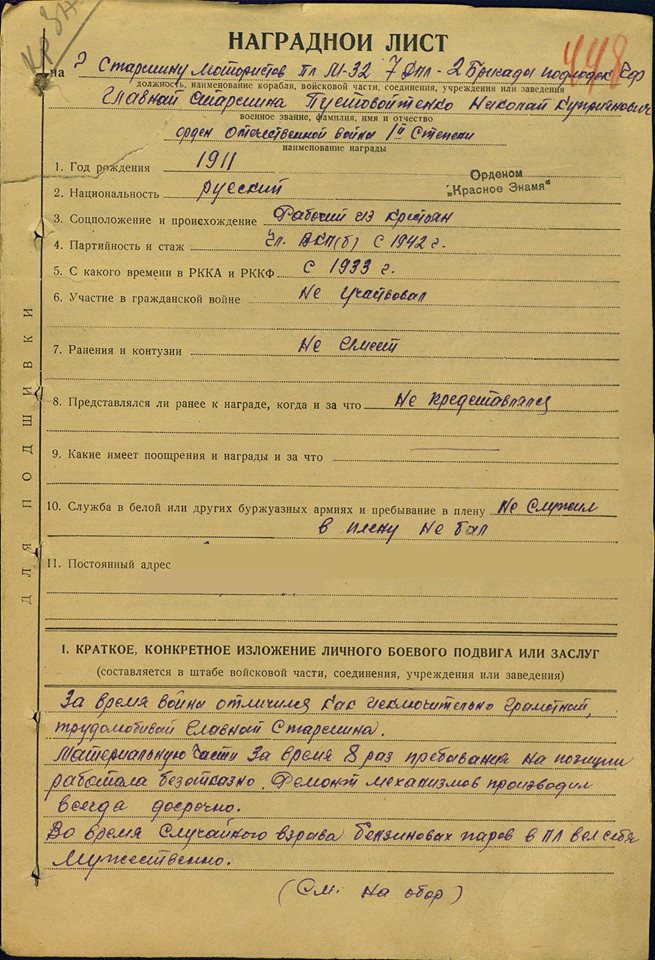 448
НАГРАДНОЙ ЛИСТ
на Старшину Мотористов пл М-32 7 Дпл - 2 Бригады подлодок
должность, наименование корабля, войсковой части, соединения, учреждения или заведения
Главный старшина Пустовойтенко Николай Куприянович
военное звание, фамилия, имя и отчество
орден Отечественной войны 1й Степени
наименование награды
1. Год рождения 1911
Орденом
„Красное Знамя“
2. Национальность русский
3. Соцположение и происхождение Рабочий из Крестьян
4. Партийность и стаж Чл. ВКП(б) с 1942 г.
5. С какого времени в РККА и РККФ С 1933 г.
6. Участие в гражданской войне Не Участвовал
7. Ранения и контузии Не Имеет
8. Представлялся ли ранее к награде, когда и за что Не представлялся
9. Какие имеет поощрения и награды и за что
10. Служба в белой или других буржуазных армиях и пребывание в плену Не Служил
в плену не был
11. Постоянный адрес
ДЛЯ ПОДШИВКИ
I. КРАТКОЕ, КОНКРЕТНОЕ ИЗЛОЖЕНИЕ ЛИЧНОГО БОЕВОГО ПОДВИГА ИЛИ ЗАСЛУГ
(составляется в штабе войсковой части, соединения, учреждения или заведения)
За время войны отличился как исключительно грамотный,
трудолюбивый Главный Старшина.
Материальную части За время 8 раз пребывания на позиции
работала безотказно. Ремонт механизмов производил
всегда досрочно.
Во время Случайного взрыва бензиновых паров в ПЛ вел себя
Мужественно.
(См. на обор)